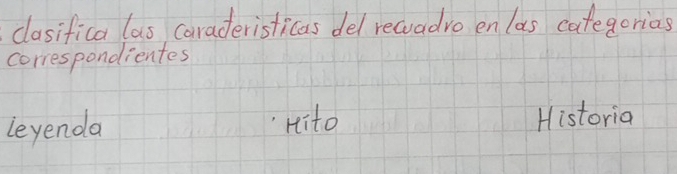 clasifica las caracteristicas del recuadro en las categorias
correspondientes
leyenda Mito Historia